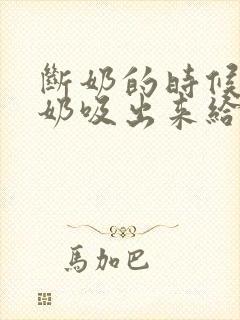 斷奶的時候
奶吸出來給
馬加巴